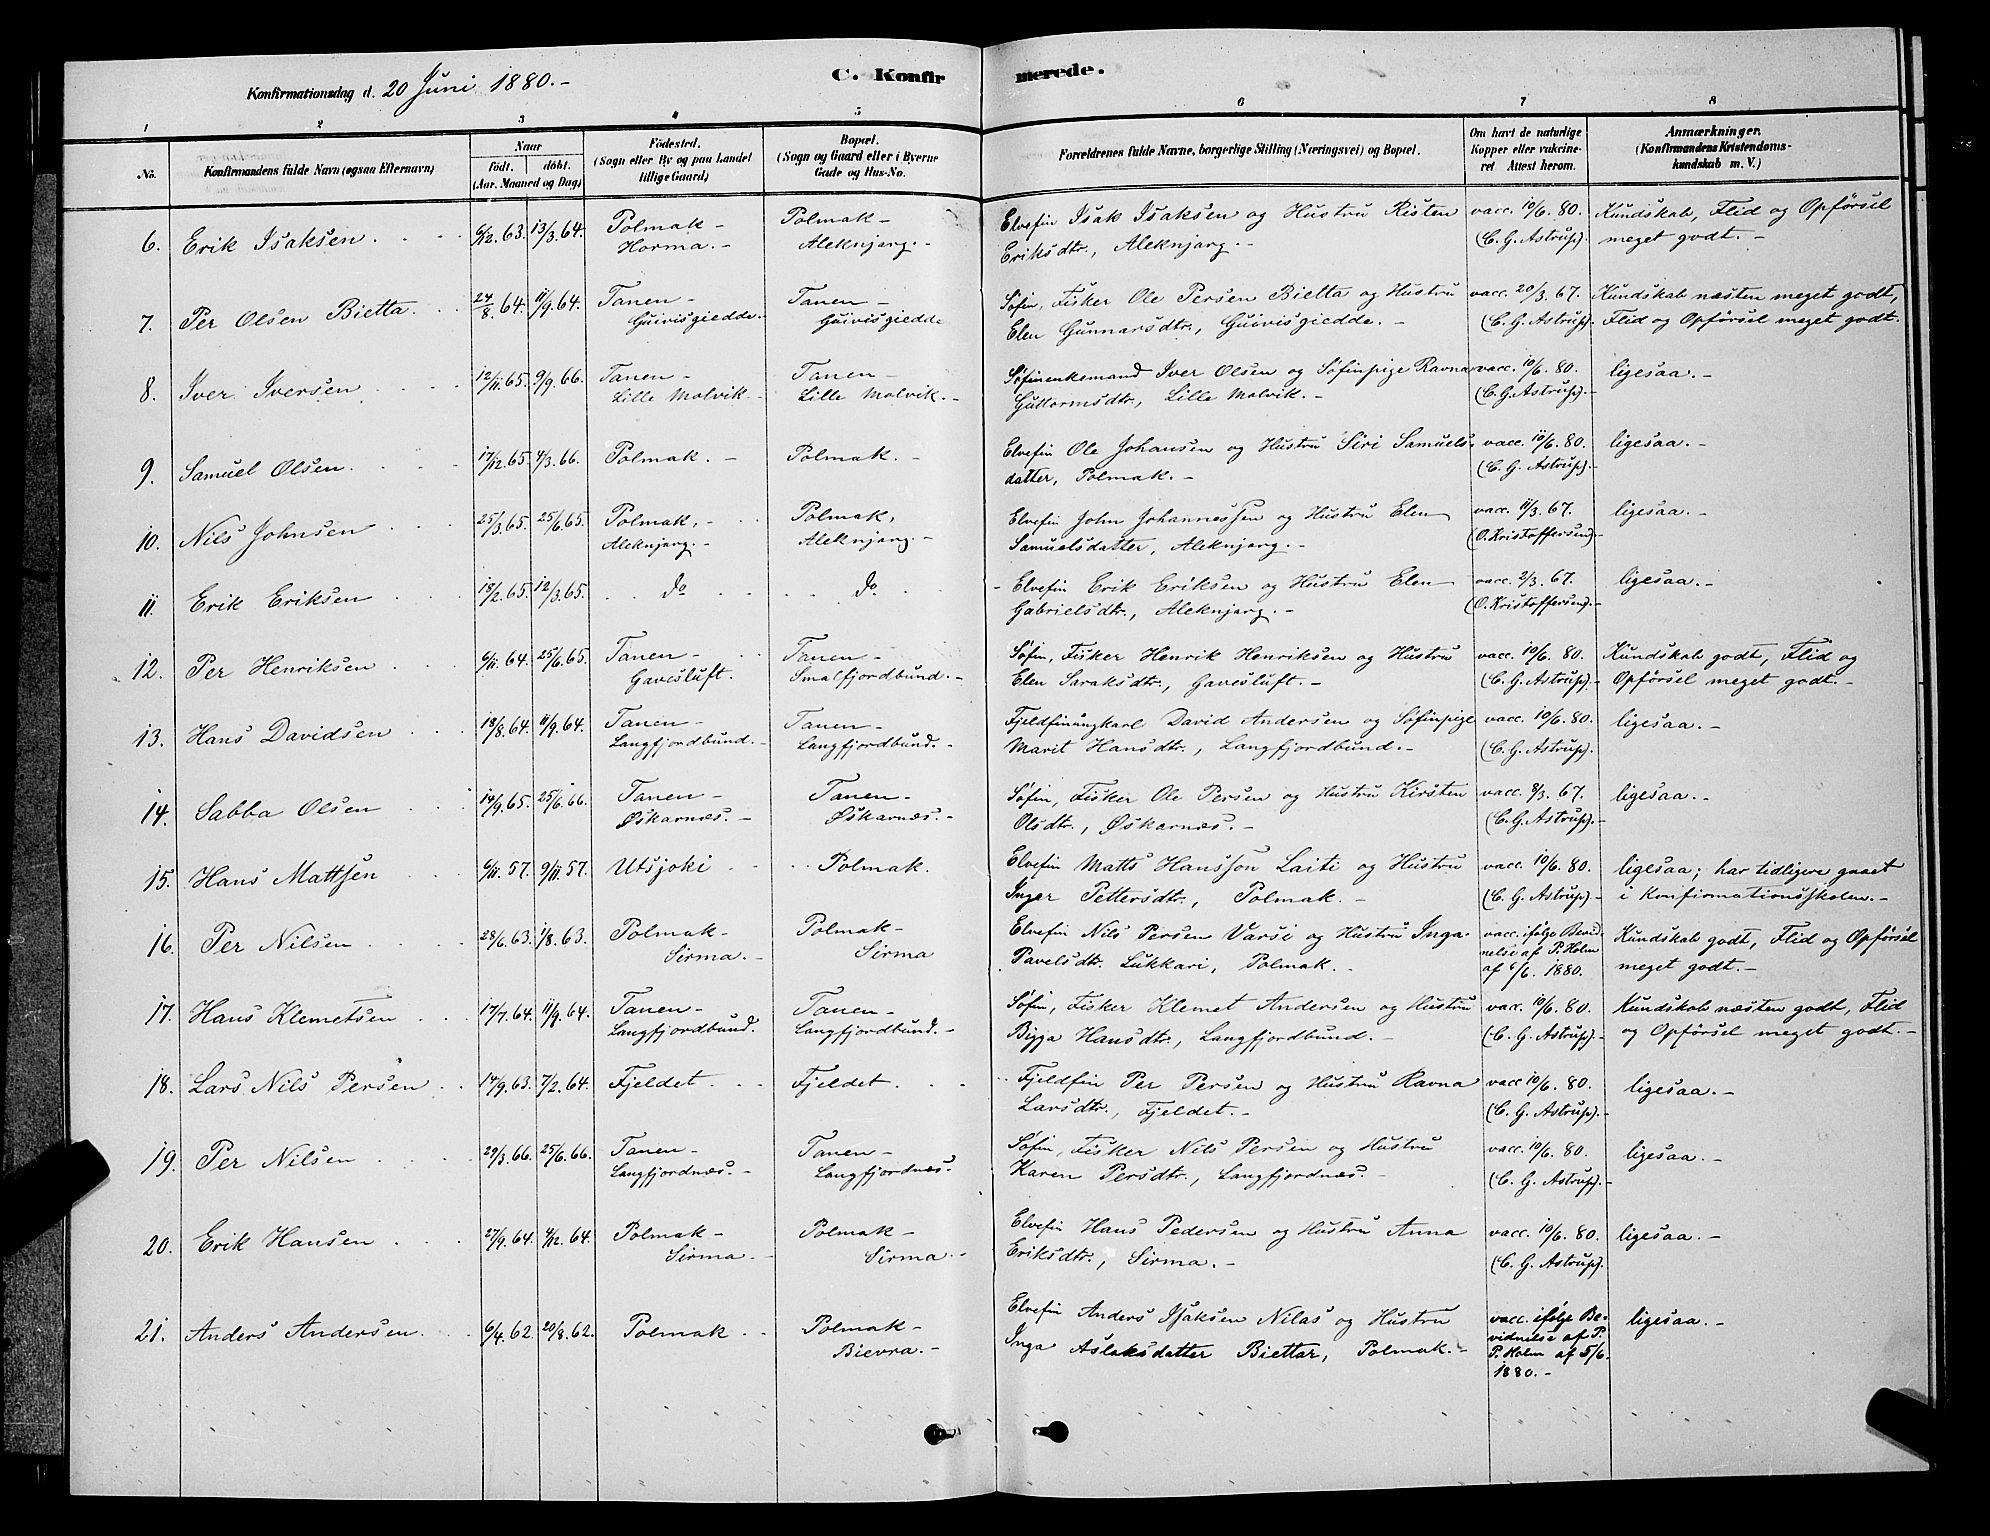 C. Konfirmerede.
Konfirmationsdag d. 20 Juni 1880.-
1 2 3 4 5 6 7 8
No. Konfirmandens fulde Navn (ogsaa Efternavn) Naar födt. döbt. (Aar. Maaned og Dag) Födested. (Sogn eller By og paa Landet tillige Gaard) Bopæl. (Sogn og Gaard eller i Byerne Gade og Hus-No. Forældrenes fulde Navne, borgerlige Stilling (Næringsvei) og Bopæl. Om havt de naturlige Kopper eller vakcineret Attest herom. Anmærkninger. (Konfirmandens Kristendomskundskab m. V.)
6. Erik Isaksen 6/12.63. 13/3.64. Polmak- Polmak- Elvefin Isak Isaksen og Hustru Risten vacc. 10/6. 80. Kundskab, Flid og Opførsel
Horma.- Aleknjarg.- Eriksdtr., Aleknjarg.- (C. G. Astrup).- meget godt.-
7. Per Olsen Bietta 24/8.64. 11/9.64. Tanen- Tanen- Søfin, Fisker Ole Persen Bietta og Hustru vacc. 20/3. 67. Kundskab næsten meget godt,
Guivisgiedde.- Guivisgiedde Elen Gunnarsdtr., Guivisgiedde.- (C. G. Astrup).- Flid og Opførsel meget godt.
8. Iver Iversen 12/11.65. 9/9.66. Tanen- Tanen- Søfinenkemand Iver Olsen og Søfinpige Ravna vacc. 10/6. 80. ligesaa.-
Lille Molvik.- Lille Molvik.- Guttormsdtr., Lille Molvik.- (C. G. Astrup).-
9. Samuel Olsen. 17/12.65. 4/3.66. Polmak.- Polmak.- Elvefin Ole Johansen og Hustru Siri Samuels- vacc. 10/6. 80. ligesaa.-
datter, Polmak.- (C. G. Astrup).-
10. Nils Johnsen 25/3.65. 25/6.65. Polmak,- Polmak, Elvefin John Johannessen og Hustru Elen vacc. 11/3. 67. ligesaa.-
Aleknjarg.- Aleknjarg.- Samuelsdatter, Aleknjarg.- (O. Kristoffersen).-
11. Erik Eriksen 18/2.65. 12/3.65. do do - Elvefin Erik Eriksen og Hustru Elen vacc. 2/3. 67. ligesaa.-
Gabrielsdtr., Aleknjarg.- (O. Kristoffersen).-
12. Per Henriksen 6/11.64. 25/6.65. Tanen- Tanen- Søfin, Fisker Henrik Henriksen og Hustru vacc. 10/6. 80. Kundskab godt, Flid og
Gavesluft. Smalfjordbund.- Elen Saraksdtr., Gavesluft.- (C. G. Astrup).- Opførsel meget godt.-
13. Hans Davidsen 18/8.64. 11/9.64. Tanen- Tanen- Fjeldfinungkarl David Andersen og Søfinpige vacc. 10/6. 80. ligesaa.-
Langfjordbund.- Langfjordbund.- Marit Hansdtr., Langfjordbund.- (C. G. Astrup).
14. Sabba Olsen 14/9.65. 25/6.66. Tanen- Tanen- Søfin, Fisker Ole Persen og Hustru Kirsten vacc. 8/3. 67. ligesaa.-
Øskarnæs.- Øskarnæs.- Olsdtr., Øskarnæs.- (C. G. Astrup).-
15. Hans Mattsen 6/11.57. 9/11.57. Utsjoki Polmak. Elvefin Matts Hansson Laiti og Hustru vacc. 10/6. 80. ligesaa; har tidligere gaaet
Inger Pettersdtr., Polmak.- (C. G. Astrup).- i Konfirmationsskolen.-
16. Per Nilsen 28/6.63. 1/8.63. Polmak- Polmak- Elvefin Nils Persen Varsi og Hustru Inga vacc. ifølge Bevid- Kundskab godt, Flid og Opførsel
Sirma.- Sirma Pavelsdtr. Lukkari, Polmak.- nelse af P. Holm meget godt.-
af 6/6. 1880.
17. Hans Klemetsen 17/7.64. 11/9.64. Tanen- Tanen- Søfin, Fisker Klemet Andersen og Hustru vacc. 10/6. 80. Kundskab næsten godt, Flid
Langfjordbund. Langfjordbund.- Bigga Hansdtr., Langfjordbund.- (C. G. Astrup).- og Opførsel meget godt.-
18. Lars Nils Persen 14/9.63. 7/2.64. Fjeldet Fjeldet Fjeldfin Per Persen og Hustru Ravna vacc 10/6. 80. ligesaa.-
Larsdtr., Fjeldet.- (C. G. Astrup).-
19. Per Nilsen 29/3.66. 25/6.66. Tanen- Tanen- Søfin, Fisker Nils Persen og Hustru vacc. 10/6. 80 ligesaa.-
Langfjordnæs.- Langfjordnæs. Karen Persdtr., Langfjordnæs.- (C. G. Astrup).-
20. Erik Hansen 27/9.64. 4/12.64. Polmak- Polmak- Elvefin Hans Pedersen og Hustru Anna vacc. 10/6. 80. ligesaa.-
Sirma.- Sirma.- Eriksdtr., Sirma.- (C. G. Astrup).
21. Anders Andersen 6/4.62. 20/8.62. Polmak Polmak- Elvefin Anders Isaksen Nilas og Hustru vacc. ifølge Be- ligesaa.-
Bievra.- Inga Aslaksdatter Biettar, Polmak.- vidnelse af P.
P. Holm af 5/6.
1880.-